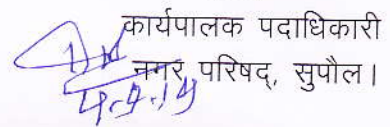 कार्यपालक पदाधिकारी
नगर परिषद्, सुपौल।